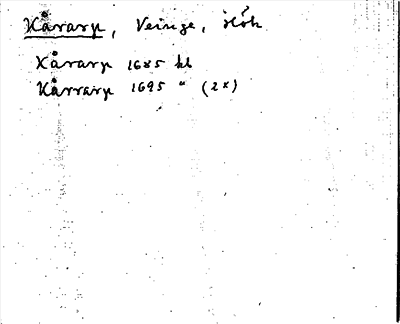 Kårarp, Veinge, Hök
Kårarp 1685 kb
Kårrarp 1695 " (2x)